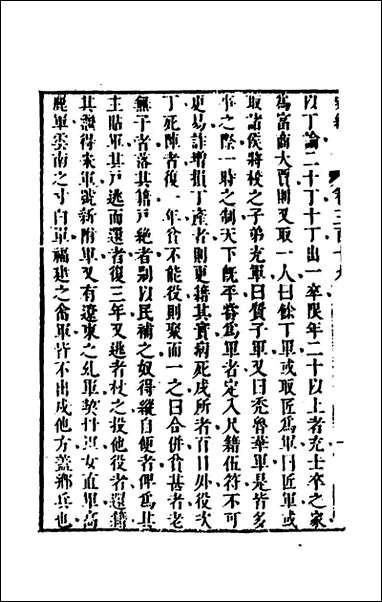 以丁論二十丁十丁出一卒限年二十以上者充士卒之家
爲富商大賈則又取一人曰餘丁軍或取匠爲軍曰匠軍或
取諸侯將校之子弟充軍曰質子軍又曰禿魯華軍是皆多
事之際一時之制天下既平嘗爲軍者定入尺籍伍符不可
更易詐增損丁產者則更籍其實病死戍所者百日外役次
丁死陣者復一年貧不能役則聚而一之曰合併貧甚者老
無子者落其籍戶絕者別以民補之奴得縱自便者俾爲其
主貼軍其戶逃而還者復三年又逃者杖之投他役者還籍
其繼得宋軍號新附軍又有遼東之乣軍契丹軍女直軍高
麗軍雲南之寸白軍福建之畲軍皆不出戍他方蓋鄉兵也